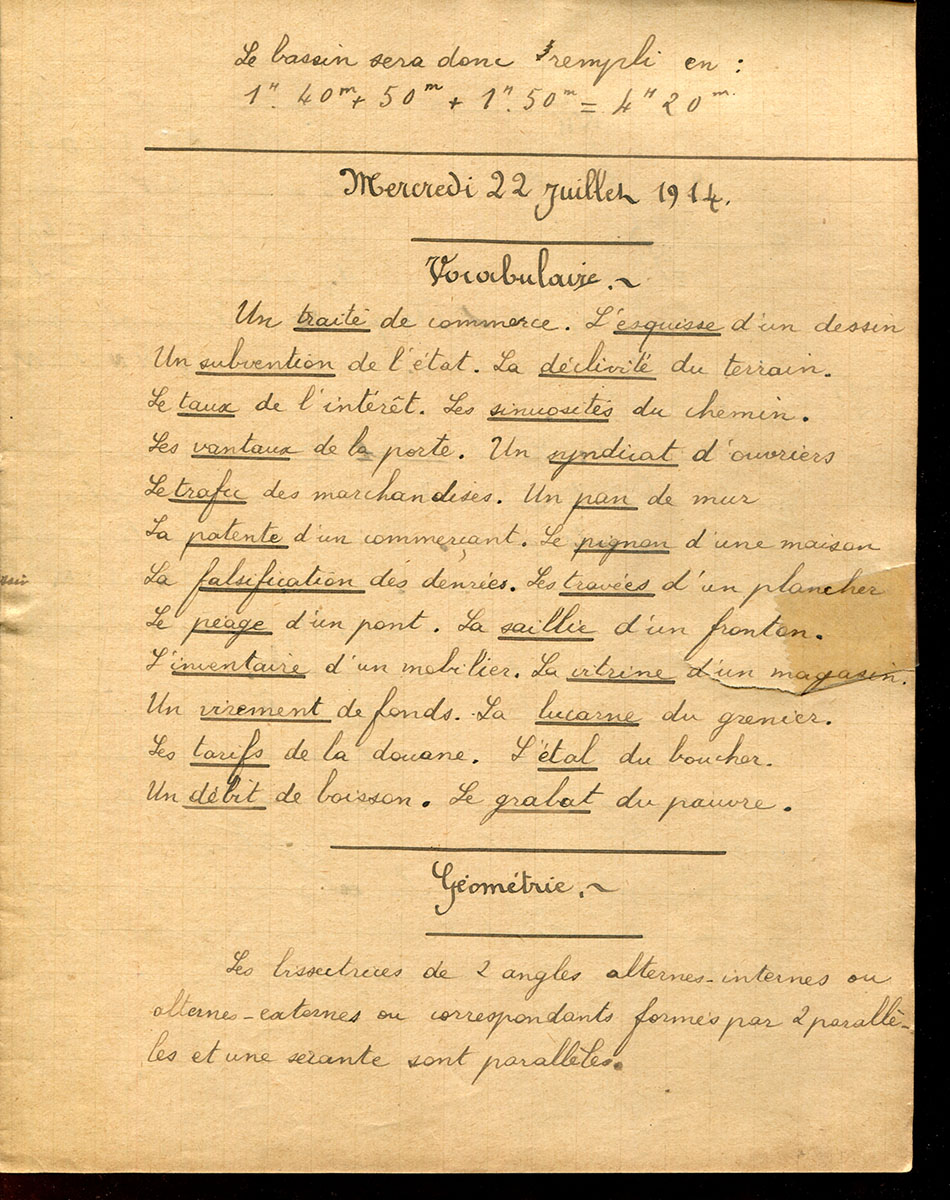 Le bassin sera donc rempli en :
1ʰ. 40ᵐ + 50ᵐ + 1ʰ. 50ᵐ = 4ʰ 20ᵐ.
Mercredi 22 Juillet 1914.
Vocabulaire.~
Un traité de commerce. L'esquisse d'un dessin
Un subvention de l'état. La déclivité du terrain.
Le taux de l'intérêt. Les sinuosités du chemin.
Les vantaux de la porte. Un syndicat d'ouvriers
Le trafic des marchandises. Un pan de mur
La patente d'un commerçant. Le pignon d'une maison
La falsification des denrées. Les travées d'un plancher
Le péage d'un pont. La saillie d'un fronton.
L'inventaire d'un mobilier. La vitrine d'un magasin.
Un virement de fonds. La lucarne du grenier.
Les tarifs de la douane. L'étal du boucher.
Un débit de boisson. Le grabat du pauvre.
Géométrie.~
Les bissectrices de 2 angles alternes-internes ou
alternes-externes ou correspondants formés par 2 parallè-
les et une sécante sont parallèles.